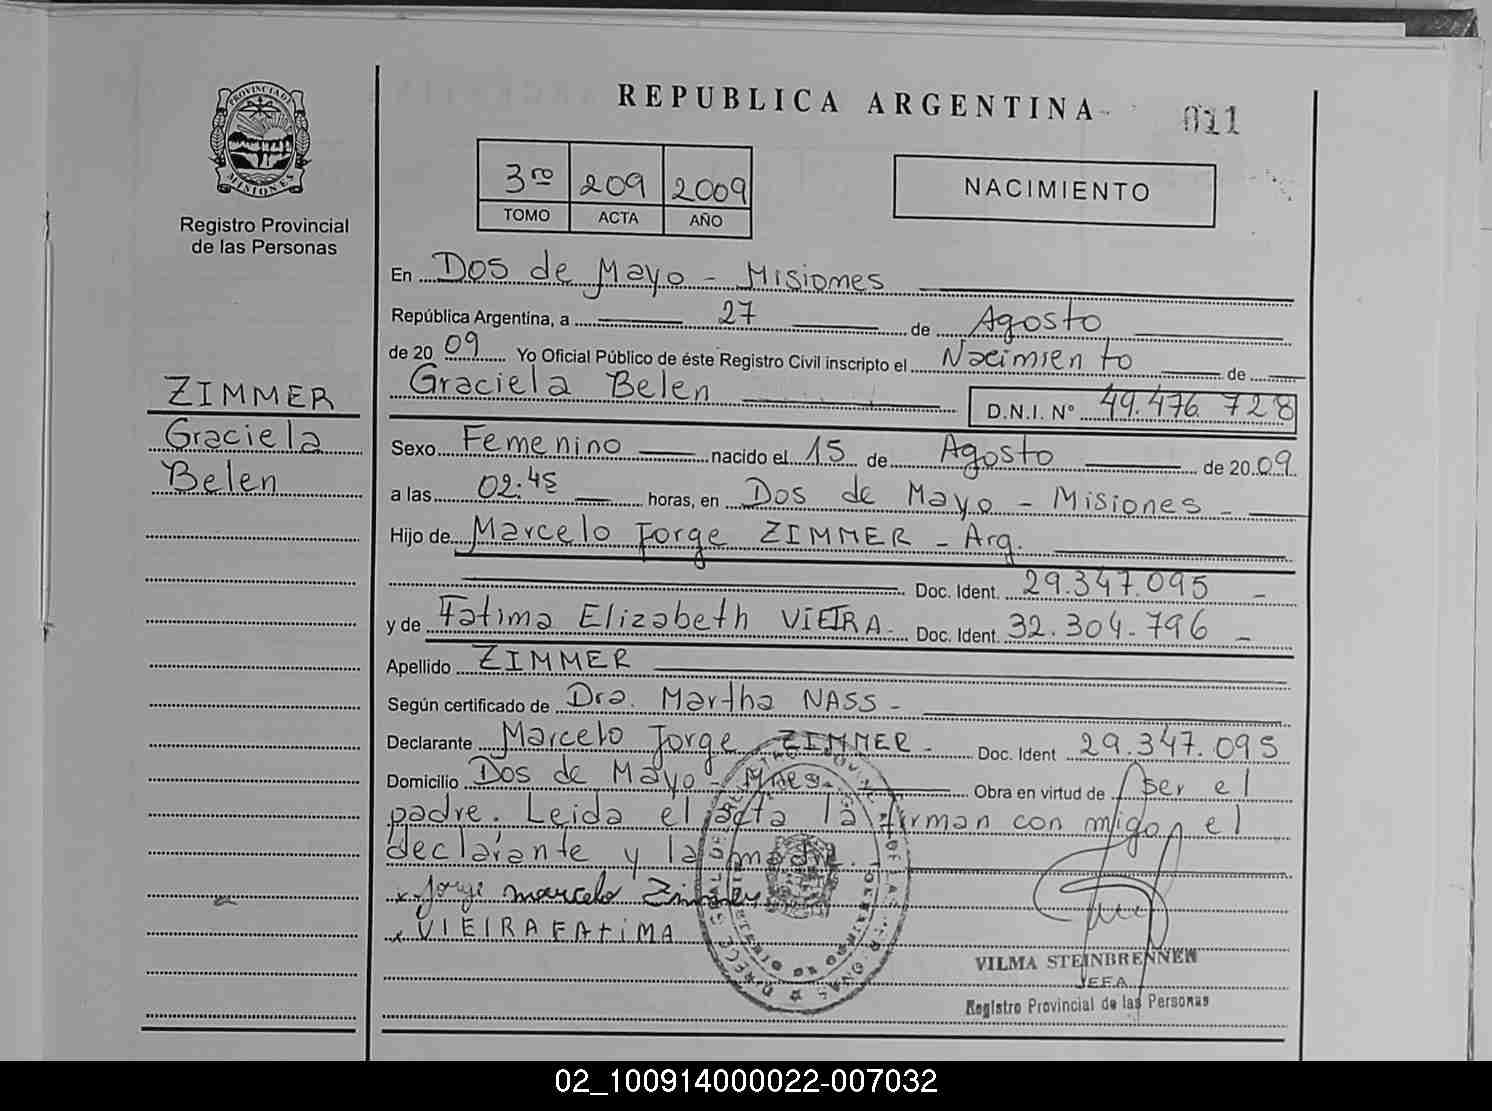 PROVINCIA DE
MISIONES
Registro Provincial
de las Personas
ZIMMER
Graciela
Belen
REPUBLICA ARGENTINA
011
3ro 209 2009
TOMO ACTA AÑO
NACIMIENTO
En Dos de Mayo - Misiones
República Argentina, a 27 de Agosto
de 20 09 Yo Oficial Público de éste Registro Civil inscripto el Nacimiento de
Graciela Belen D.N.I. N° 49.476.728
Sexo Femenino nacido el 15 de Agosto de 20 09
a las 02:45 horas, en Dos de Mayo - Misiones -
Hijo de Marcelo Jorge ZIMMER - Arg.
Doc. Ident. 29.347.095 -
y de Fatima Elizabeth VIEIRA - Doc. Ident. 32.304.796 -
Apellido ZIMMER
Según certificado de Dra. Martha NASS -
Declarante Marcelo Jorge ZIMMER - Doc. Ident 29.347.095
Domicilio Dos de Mayo - Mnes. Obra en virtud de ser el
padre. Leida el acta la firman con migo, el
declarante y la madre.
x Jorge marcelo Zimmer
x VIEIRA FAtiMA
VILMA STEINBRENNER
JEFA
Registro Provincial de las Personas
02_100914000022-007032